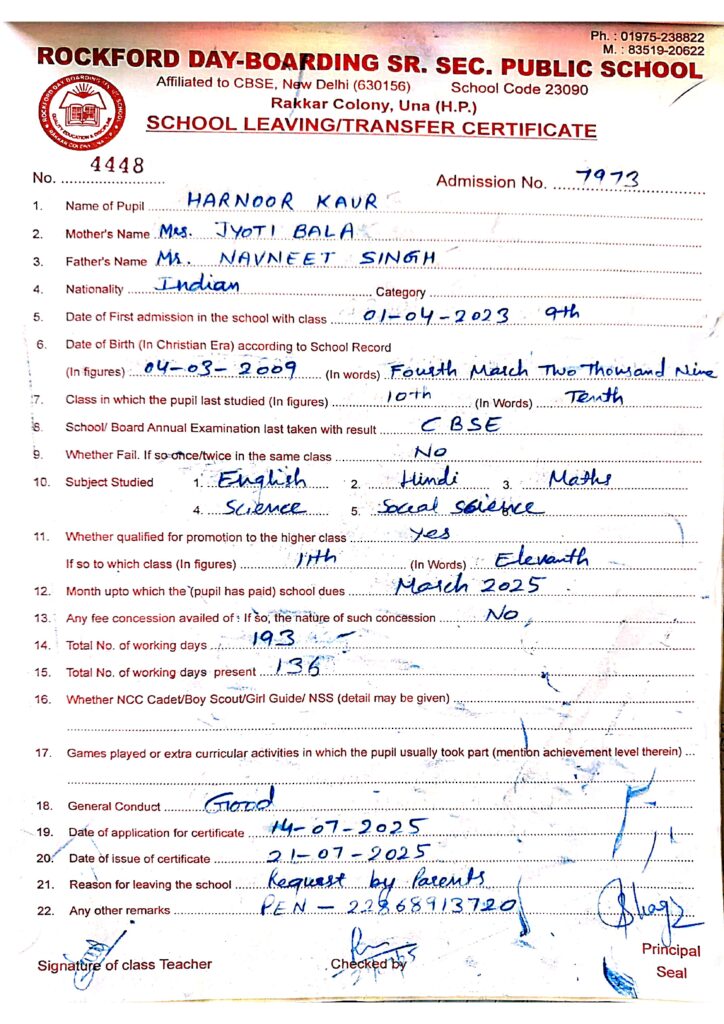 Ph. : 01975-238822
M. : 83519-20622
ROCKFORD DAY-BOARDING SR. SEC. PUBLIC SCHOOL
Affiliated to CBSE, New Delhi (630156) School Code 23090
Rakkar Colony, Una (H.P.)
SCHOOL LEAVING/TRANSFER CERTIFICATE
No. 4448 Admission No. 7973
1. Name of Pupil HARNOOR KAUR
2. Mother's Name Mrs. JYOTI BALA
3. Father's Name Mr. NAVNEET SINGH
4. Nationality Indian Category
5. Date of First admission in the school with class 01-04-2023 9th
6. Date of Birth (In Christian Era) according to School Record
(In figures) 04-03-2009 (In words) Fourth March Two Thousand Nine
7. Class in which the pupil last studied (In figures) 10th (In Words) Tenth
8. School/ Board Annual Examination last taken with result CBSE
9. Whether Fail. If so once/twice in the same class No
10. Subject Studied 1. English 2. Hindi 3. Maths
4. Science 5. Social science
11. Whether qualified for promotion to the higher class Yes
If so to which class (In figures) 11th (In Words) Elevanth
12. Month upto which the (pupil has paid) school dues March 2025
13. Any fee concession availed of : If so, the nature of such concession No
14. Total No. of working days 193
15. Total No. of working days present 136
16. Whether NCC Cadet/Boy Scout/Girl Guide/ NSS (detail may be given)
17. Games played or extra curricular activities in which the pupil usually took part (mention achievement level therein)
18. General Conduct Good
19. Date of application for certificate 14-07-2025
20. Date of issue of certificate 21-07-2025
21. Reason for leaving the school Request by Parents
22. Any other remarks PEN - 22868913720
Signature of class Teacher Checked by Principal
Seal